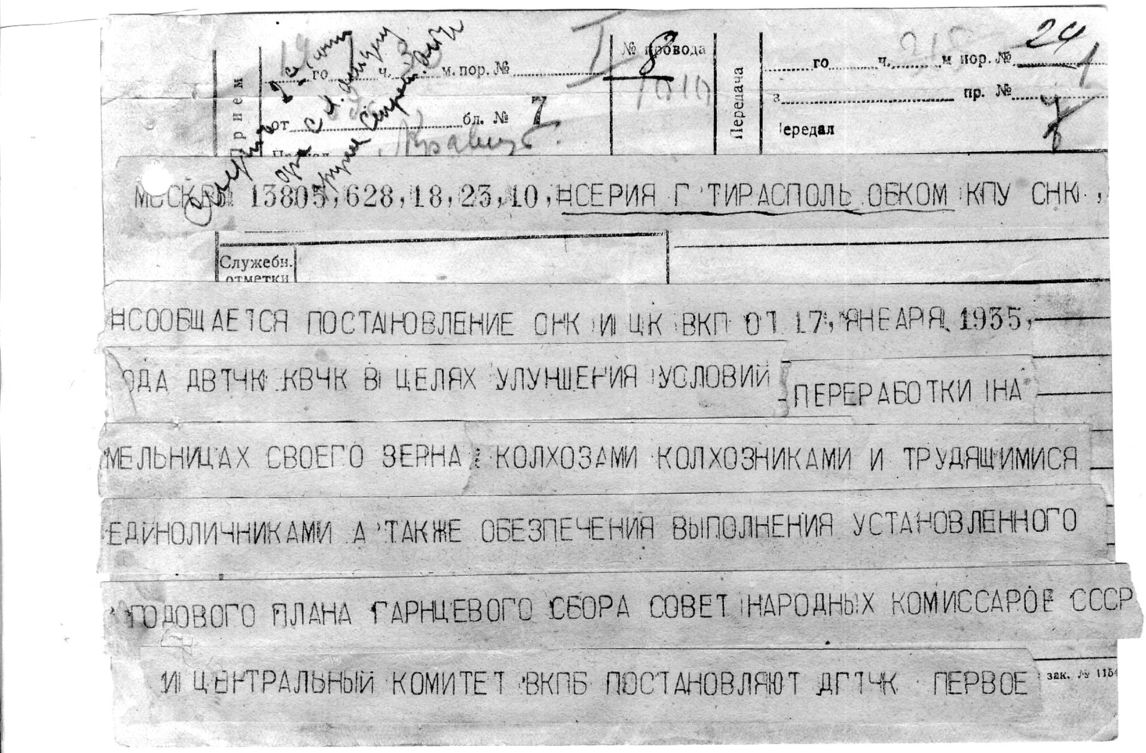 Прием
го ч. м. пор. №
№ провода
8
Передача
го ч. м пор. № 24
от бл. № 7
з пр. № 1
ередал
МОСКВЫ 13805, 628, 18, 23, 10, НСЕРИЯ Г ТИРАСПОЛЬ ОБКОМ КПУ СНК,
Служебн.
отметки
НСООБЩАЕТСЯ ПОСТАНОВЛЕНИЕ СНК И ЦК ВКП ОТ 17, ЯНЕАРЯ 1935,
ОДА ДВТЧК КВЧК В ЦЕЛЯХ УЛУНШЕНИЯ УСЛОВИЙ ПЕРЕРАБОТКИ НА
МЕЛЬНИЦАХ СВОЕГО ЗЕРНА КОЛХОЗАМИ КОЛХОЗНИКАМИ И ТРУДЯЩИМИСЯ
ЕДИНОЛИЧНИКАМИ А ТАКЖЕ ОБЕЗПЕЧЕНИЯ ВЫПОЛНЕНИЯ УСТАНОВЛЕННОГО
ГОДОВОГО ПЛАНА ГАРНЦЕВОГО СБОРА СОВЕТ НАРОДНЫХ КОМИССАРОЕ СССР
И ЦЕНТРАЛЬНЫЙ КОМИТЕТ ВКПБ ПОСТАНОВЛЯЮТ ДГТЧК ПЕРВОЕ
зак. № 1154